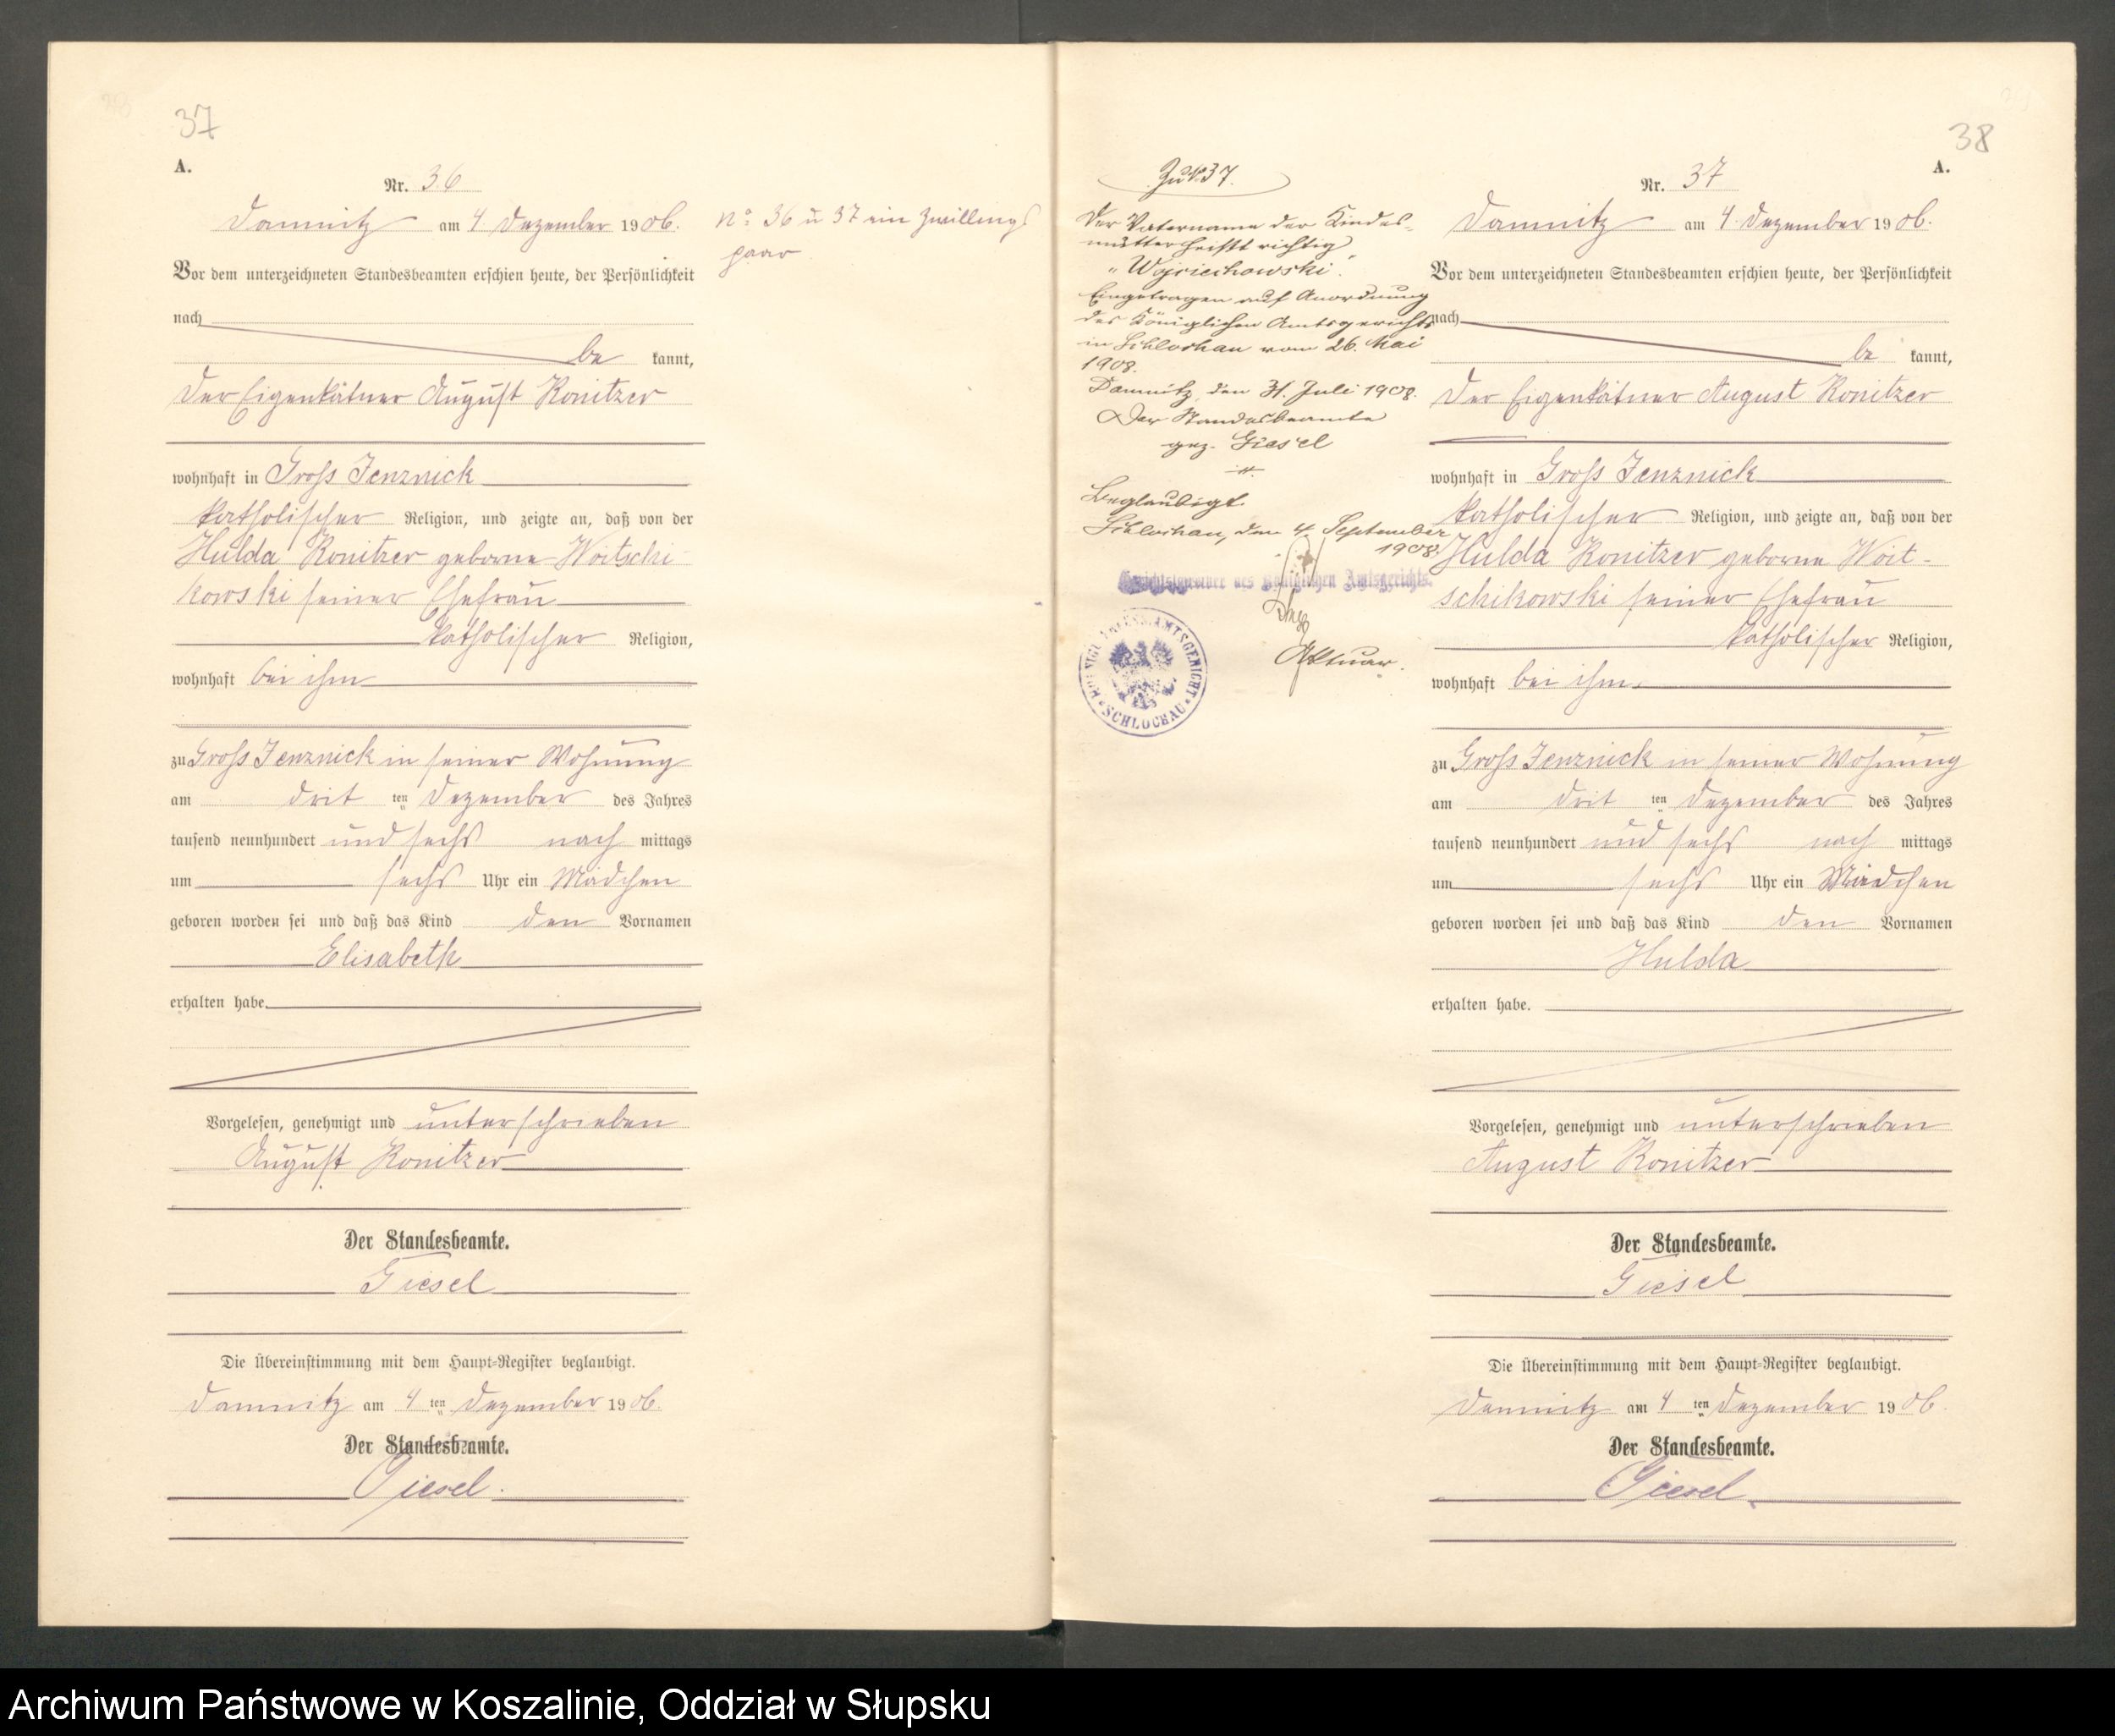 37
A.
Nr. 36
Damnitz am 4 Dezember 1906.
Vor dem unterzeichneten Standesbeamten erschien heute, der Persönlichkeit
nach
be kannt,
der Eigenkätner August Konitzer
wohnhaft in Gross Jenznick
katholischer Religion, und zeigte an, daß von der
Hulda Konitzer geborne Woitschi-
kowski seiner Ehefrau
katholischer Religion,
wohnhaft bei ihm
zu Gross Jenznick in seiner Wohnung
am drit ten Dezember des Jahres
tausend neunhundert und sechs nach mittags
um sechs Uhr ein Mädchen
geboren worden sei und daß das Kind den Vornamen
Elisabeth
erhalten habe.
Vorgelesen, genehmigt und unterschrieben
August Konitzer
Der Standesbeamte.
Giesel
Die Übereinstimmung mit dem Haupt-Register beglaubigt.
Damnitz am 4 ten Dezember 1906.
Der Standesbeamte.
Giesel.
No 36 u 37 ein Zwillings
paar
Zu No 37.
Der Vatername der Kindes-
mutter heißt richtig
"Wojciechowski".
Eingetragen auf Anordnung
des Königlichen Amtsgerichts
in Schlochau vom 26. Mai
1908.
Damnitz, den 31. Juli 1908.
Der Standesbeamte
gez. Giesel
Beglaubigt.
Schlochau, den 4. September
1908.
des Königlichen Amtsgerichts.
Aktuar.
KÖNIGL. PREUSS. AMTSGERICHT
SCHLOCHAU
38
A.
Nr. 37
Damnitz am 4. Dezember 1906.
Vor dem unterzeichneten Standesbeamten erschien heute, der Persönlichkeit
nach
be kannt,
der Eigenkätner August Konitzer
wohnhaft in Gross Jenznick
katholischer Religion, und zeigte an, daß von der
Hulda Konitzer geborne Woit-
schikowski seiner Ehefrau
katholischer Religion,
wohnhaft bei ihm
zu Gross Jenznick in seiner Wohnung
am drit ten Dezember des Jahres
tausend neunhundert und sechs nach mittags
um sechs Uhr ein Mädchen
geboren worden sei und daß das Kind den Vornamen
Hulda
erhalten habe.
Vorgelesen, genehmigt und unterschrieben
August Konitzer
Der Standesbeamte.
Giesel
Die Übereinstimmung mit dem Haupt-Register beglaubigt.
Damnitz am 4 ten Dezember 1906.
Der Standesbeamte.
Giesel
Archiwum Państwowe w Koszalinie, Oddział w Słupsku